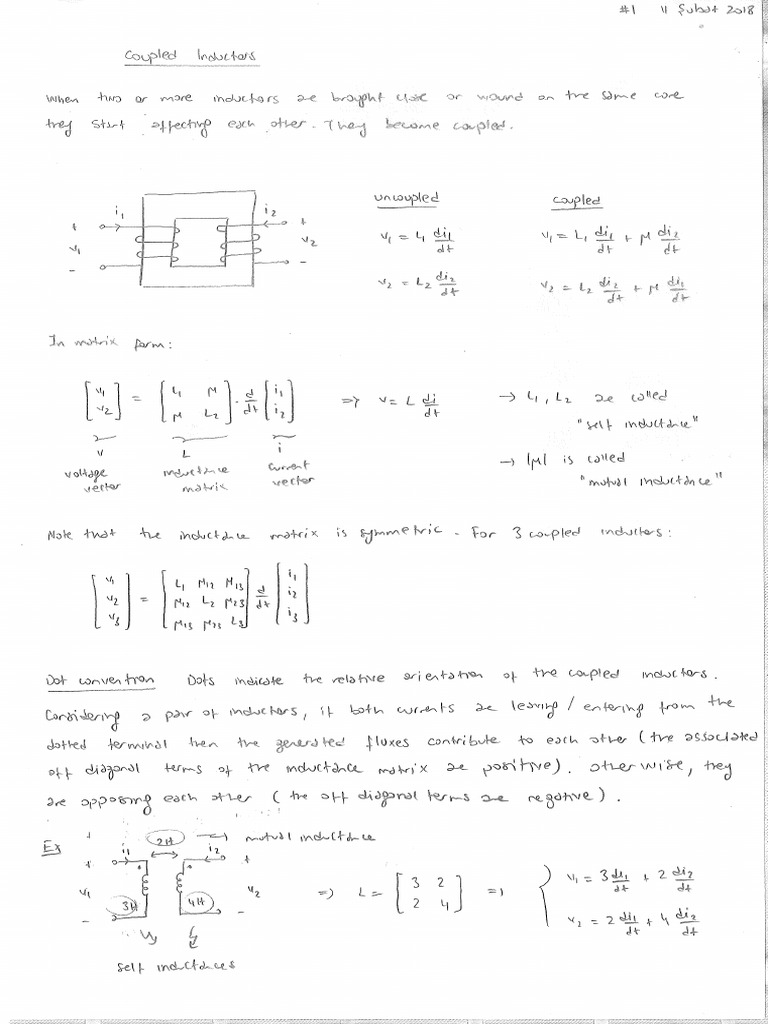 #1 11 Şubat 2018
Coupled Inductors
When two or more inductors are brought close or wound on the same core
they start affecting each other. They become coupled.
i1 i2
+ v1 -
+ v2 -
uncoupled
v1 = L1 di1/dt
v2 = L2 di2/dt
coupled
v1 = L1 di1/dt + M di2/dt
v2 = L2 di2/dt + M di1/dt
In matrix form:
[v1 v2] = [L1 M M L2] . d/dt [i1 i2] => v = L di/dt
v L i
voltage vector inductance matrix current vector
→ L1, L2 are called
"self inductance"
→ |M| is called
"mutual inductance"
Note that the inductance matrix is symmetric. For 3 coupled inductors:
[v1 v2 v3] = [L1 M12 M13 M12 L2 M23 M13 M23 L3] d/dt [i1 i2 i3]
Dot convention Dots indicate the relative orientation of the coupled inductors.
Considering a pair of inductors, if both currents are leaving / entering from the
dotted terminal then the generated fluxes contribute to each other (the associated
off diagonal terms of the inductance matrix are positive). Otherwise, they
are opposing each other (the off diagonal terms are negative).
Ex
+ 2H → mutual inductance
i1 i2
+ v1 - 3H 4H + v2 -
self inductances
=> L = [3 2 2 4] =>
v1 = 3 di1/dt + 2 di2/dt
v2 = 2 di1/dt + 4 di2/dt